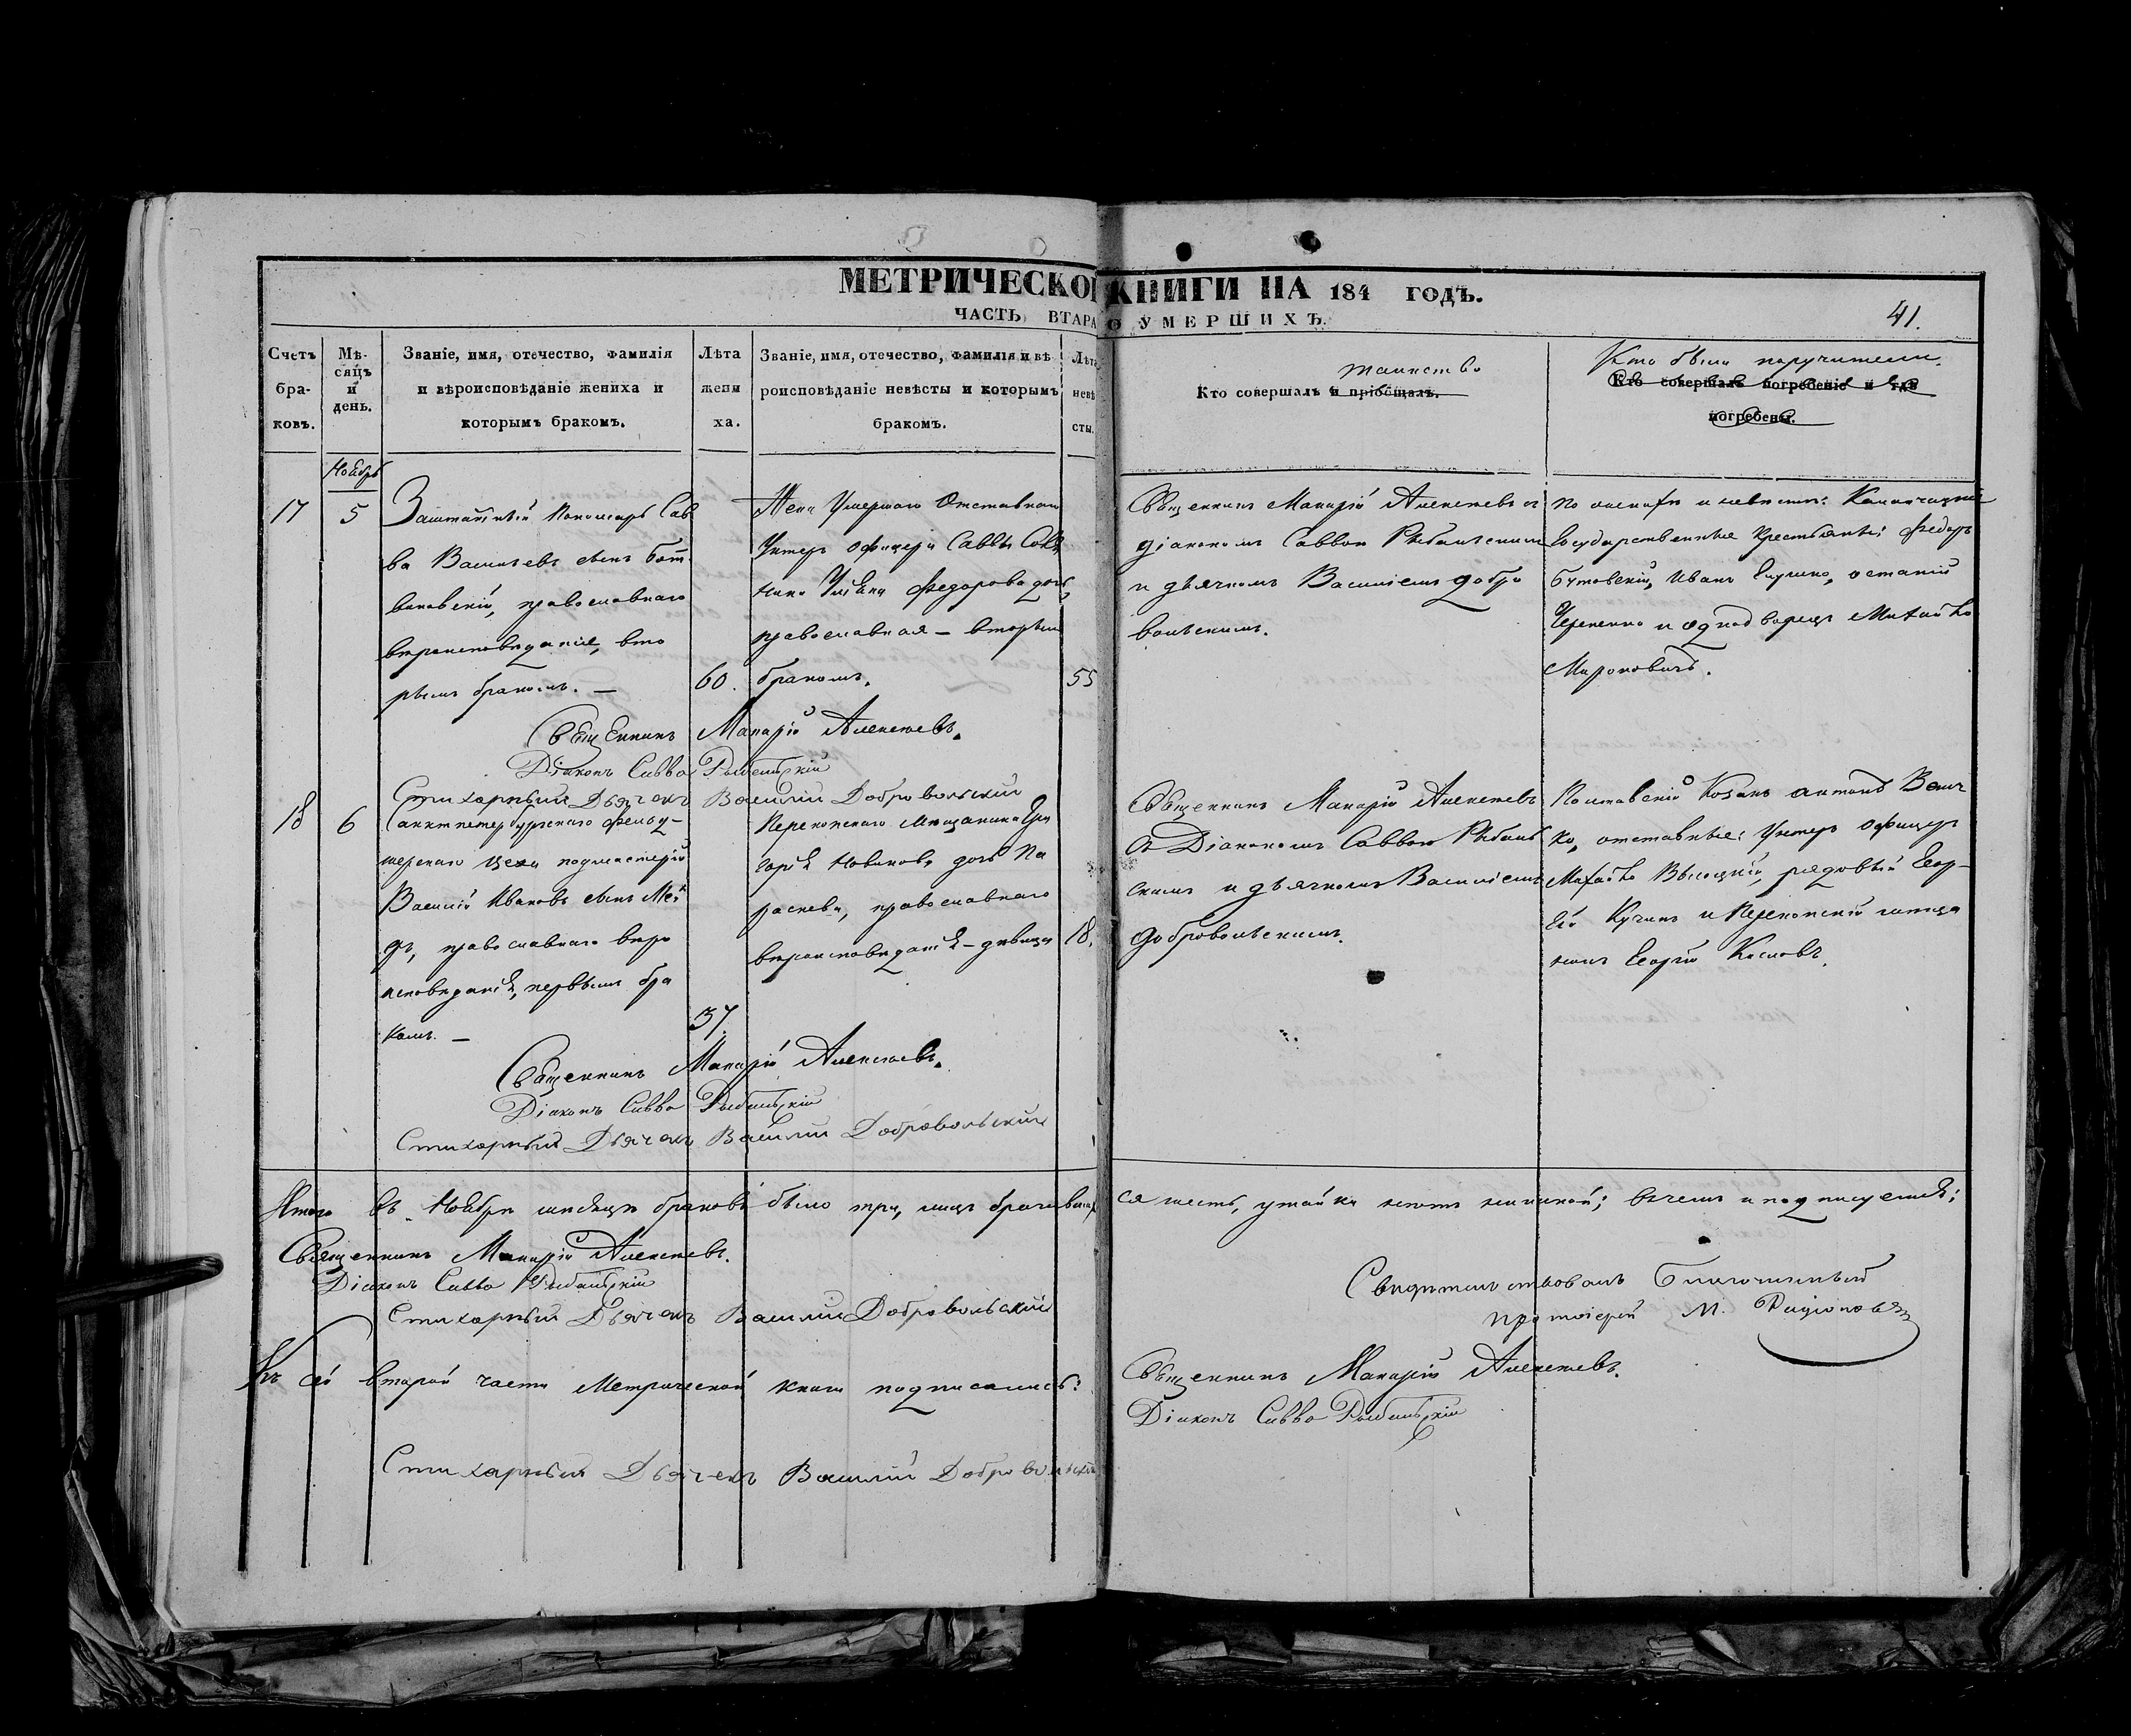 МЕТРИЧЕСКОЙ КНИГИ НА 184 ГОДЪ.
ЧАСТЬ ВТАРА О УМЕРШИХЪ.
41.
Счетъ бра- ковъ.
Мѣ- сяцъ и день.
Званіе, имя, отечество, фамилія
и вѣроисповѣданіе жениха и
которымъ бракомъ.
Лѣта жени ха.
Званіе, имя, отечество, фамилія и вѣ
роисповѣданіе невѣсты и которымъ
бракомъ.
Лѣта невѣ сты.
таинство
Кто совершалъ и пріобщалъ.
Кто были поручители.
Кто совершалъ погребеніе и гдѣ
погребены.
Ноябрь
17
5
Заштатный Пономарь Сав
ва Васильевъ сынъ
православнаго
вѣроисповѣданія, вто
рымъ бракомъ. —
60.
Жена Умершаго Отставнаго
Унтеръ офицера Саввы
Федорова дочь,
православная — вторымъ
бракомъ.
55
Священникъ Макарій Алексѣевъ съ
діакономъ Саввою Рыбальскимъ
и дьячкомъ Василіемъ Добро
вольскимъ.
По женихѣ и невѣстѣ:
Государственные Крестьяне: Федоръ
Бутовскій, Иванъ
и однодворецъ Михайло
Мироновичъ.
Священникъ Макарій Алексѣевъ.
Діаконъ Савва Рыбальскій
Стихарный Дьячекъ Василий Добровольский
18
6
Санктпетербургскаго Фельд-
шерскаго цеха подмастерій
Василій Ивановъ сынъ Мей
еръ, православнаго вѣро
исповѣданія, первымъ бра
комъ. —
37.
Перекопскаго Мѣщанина Гри
горія Новикова дочь Па
раскева, православнаго
вѣроисповѣданія — дѣвица
18.
Священникъ Макарій Алексѣевъ
съ Діакономъ Саввою Рыбаль
скимъ и дьячкомъ Василіемъ
Добровольскимъ.
Полтавскій Козакъ Антонъ Велич
ко, отставные: Унтеръ офицеръ
Михайло Высоцкій, рядовый Геор-
гій Кучинъ и Перекопскій мѣща
нинъ Георгій
Священникъ Макарій Алексѣевъ.
Діаконъ Савва Рыбальскій
Стихарный Дьячекъ Василий Добровольский
Итого въ Ноябрѣ мѣсяцѣ браковъ было три, лицъ брачивших
ся шесть, утайки нѣтъ никакой; въ чемъ и подписуемся:
Священникъ Макарій Алексѣевъ.
Діаконъ Савва Рыбальскій
Стихарный Дьячекъ Василий Добровольский
Свидѣтельствовалъ Благочинный
протоіерей М. Родіоновъ
Къ сей второй части Метрической книги подписались:
Священникъ Макарій Алексѣевъ.
Діаконъ Савва Рыбальскій
Стихарный Дьячекъ Василий Добровольский